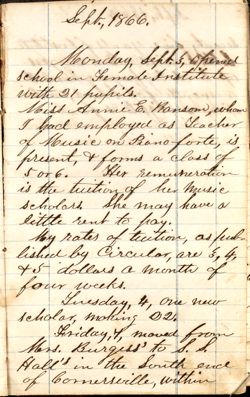 Sept, 1860.
Monday, Sept. 3, opened
school in Female Institute
with 21 pupils.
Miss Annie E. Hanson, whom
I had employed as Teacher
of Music on Piano forte, is
present, & forms a class of
5 or 6. Her remuneration
is the tuition of her Music
scholars. She may have a
little rent to pay.
My rates of tuition, as pub-
lished by Circular, are 3, 4,
& 5 dollars a month of
four weeks.
Tuesday, 4, one new
scholar, making 22.
Friday, 7, moved from
Mrs. Burgess' to S. S.
Hall's in the South end
of Cornersville, within